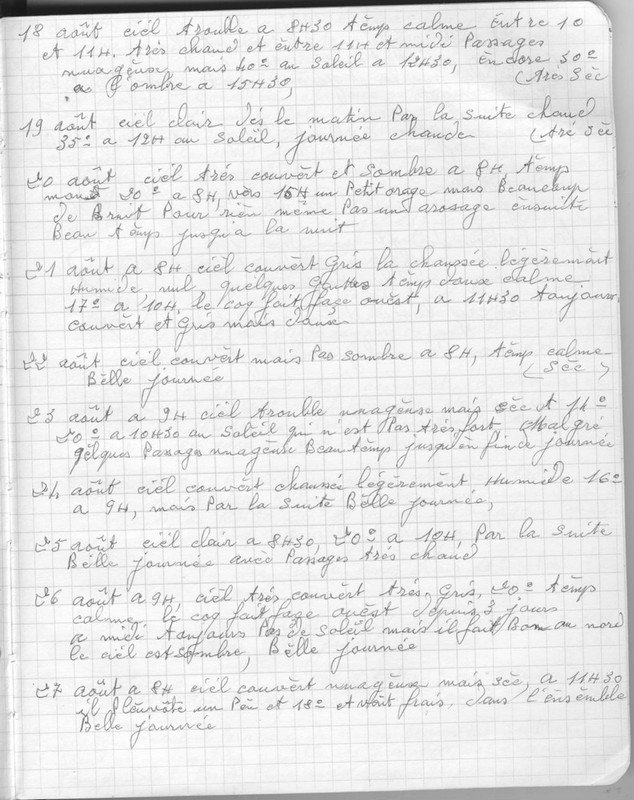 18 août ciél trouble a 8H30 témp calme éntre 10
et 11H. trés chaud et éntre 11H et midi Passages
nuagéuse mais 40° au Soléil a 12H30, éncore 30°
a l'ombre a 15H30, (trés Séc
19 août ciél clair dés le matin Par la suite chaud
35° a 12H au Soléil, journée chaude (tré Séc
20 août ciél trés couvért et sombre a 8H, témp
20° a 8H, vérs 15H un Petit orage mais Beaucoup
de Bruit Pour rién même Pas un arosage énsuite
Beau témp jusqu'a la nuit
21 août a 8H ciél couvért Gris la chaussée légèremént
Humide nul, quélques goutes témp doux calme
17° a 10H, le coq fait face ouést, a 11H30 toujours
couvért et Gris mais doux
22 août ciél couvért mais Pas sombre a 8H, témp calme
Bélle journée (Séc)
23 août a 9H ciél trouble nuagéuse mais séc et 14°
20° a 10H30 au Soléil qui n'ést Pas trés fort, Malgré
qélques Passages nuagéuse Beau témp jusqu'én fin de journée
24 août ciél couvért chaussée légèremént Humide 16°
a 9H, mais Par la suite Bélle journée,
25 août ciél clair a 8H30, 20° a 10H Par la suite
Bélle journée avéc Passages trés chaud
26 août a 9H ciél trés couvért trés Gris, 20° témp
calme, le coq fait face ouést dépuis 3 jours
a midi toujours Pas de Soléil mais il fait Bon au nord
le ciél est sombre, Bélle journée
27 août a 8H ciél couvért nuagéuse mais séc, a 11H30
il Pleuvote un Peu et 18° et vént frais, dans l'énsémble
Bélle journée